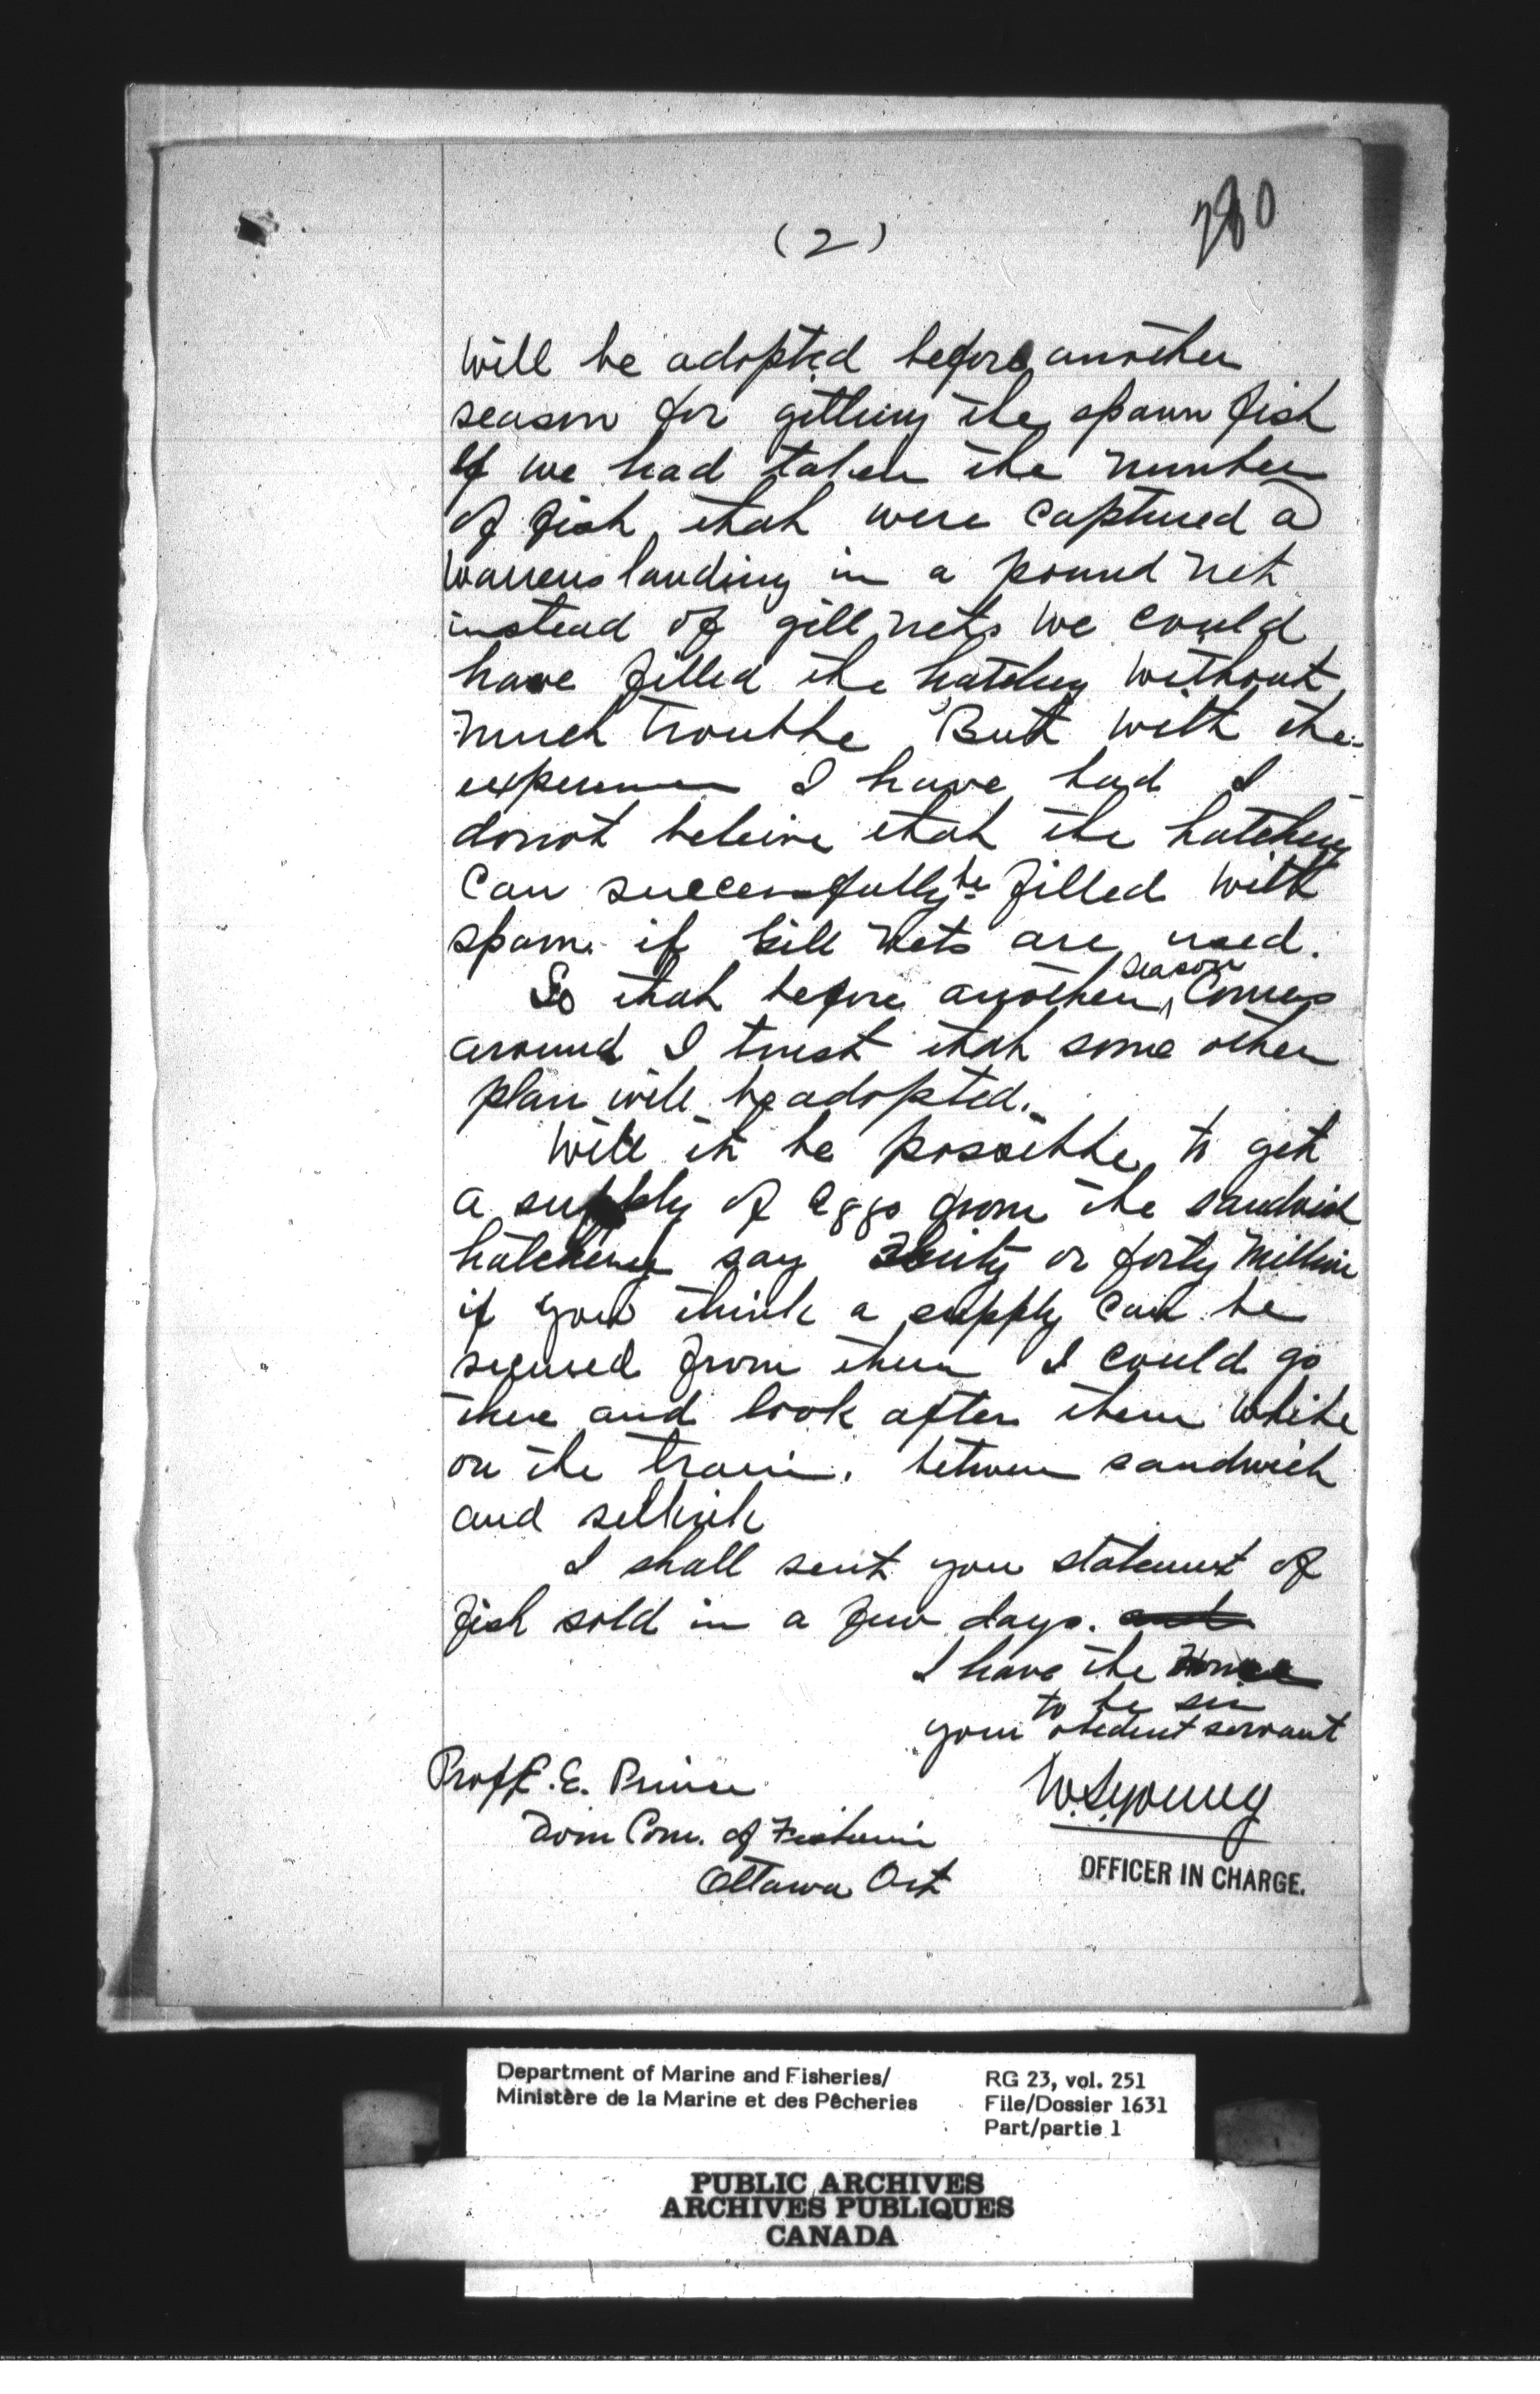 (2)
780
will be adopted before another
season for getting the spawn fish
If we had taken the number
of fish, that were captured a
Warrens landing in a pound net
instead of gill nets we could
have filled the hatchery without
much trouble But with the
experience I have had I
donot beleive that the hatchery
can successfully be filled with
spawn if Gill nets are used.
So that before another season comes
around I trust that some other
plan will be adopted.
Will it be possible to get
a supply of eggs from the sandwich
hatchery say thirty or forty million
if you think a supply can be
secured from them I could go
there and look after them while
on the train. between sandwich
and selkirk
I shall sent you statement of
fish sold in a few days. and
I have the
to be sir
your obedient servant
Proff. E. Prince W.S. young
Dom Com. of Fisheries
Ottawa Ont
OFFICER IN CHARGE.
Department of Marine and Fisheries/
Ministère de la Marine et des Pêcheries
RG 23, vol. 251
File/Dossier 1631
Part/partie 1
PUBLIC ARCHIVES
ARCHIVES PUBLIQUES
CANADA